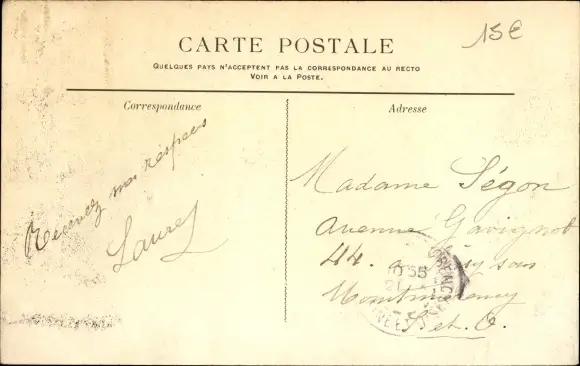 15€
CARTE POSTALE
QUELQUES PAYS N'ACCEPTENT PAS LA CORRESPONDANCE AU RECTO
VOIR A LA POSTE.
Correspondance
Adresse
Recevez mes respects
Laure
Madame Ségon
Avenue Gavignot
44. sous
Montmorency
S et O.
10 55